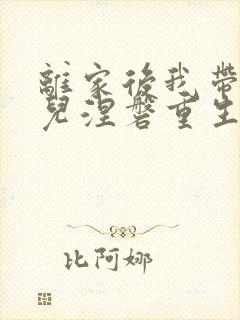 離家後我帶
兒涅磐重生
比阿娜